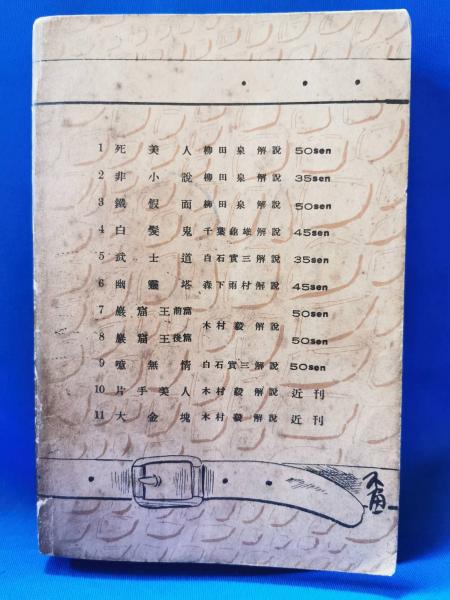 1 死美人 柳田泉解説 50sen
2 非小說 柳田泉解説 35sen
3 鐵假面 柳田泉解説 50sen
4 白髮鬼 千葉龜雄解説 45sen
5 武士道 白石實三解説 35sen
6 幽靈塔 森下雨村解説 45sen
7 巌窟王前篇 50sen
木村毅解説
8 巌窟王後篇 50sen
9 噫無情 白石實三解説 50sen
10 片手美人 木村毅解説 近刊
11 大金塊 木村毅解説 近刊